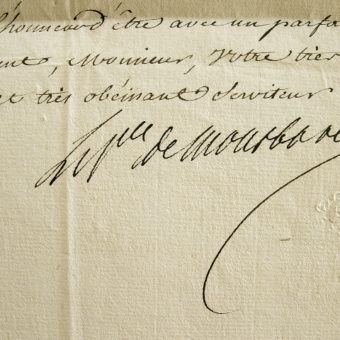 l'honneur d'être avec un parfa
ent, Monsieur, Votre très
et très obéissant Serviteur
Le p.ce de